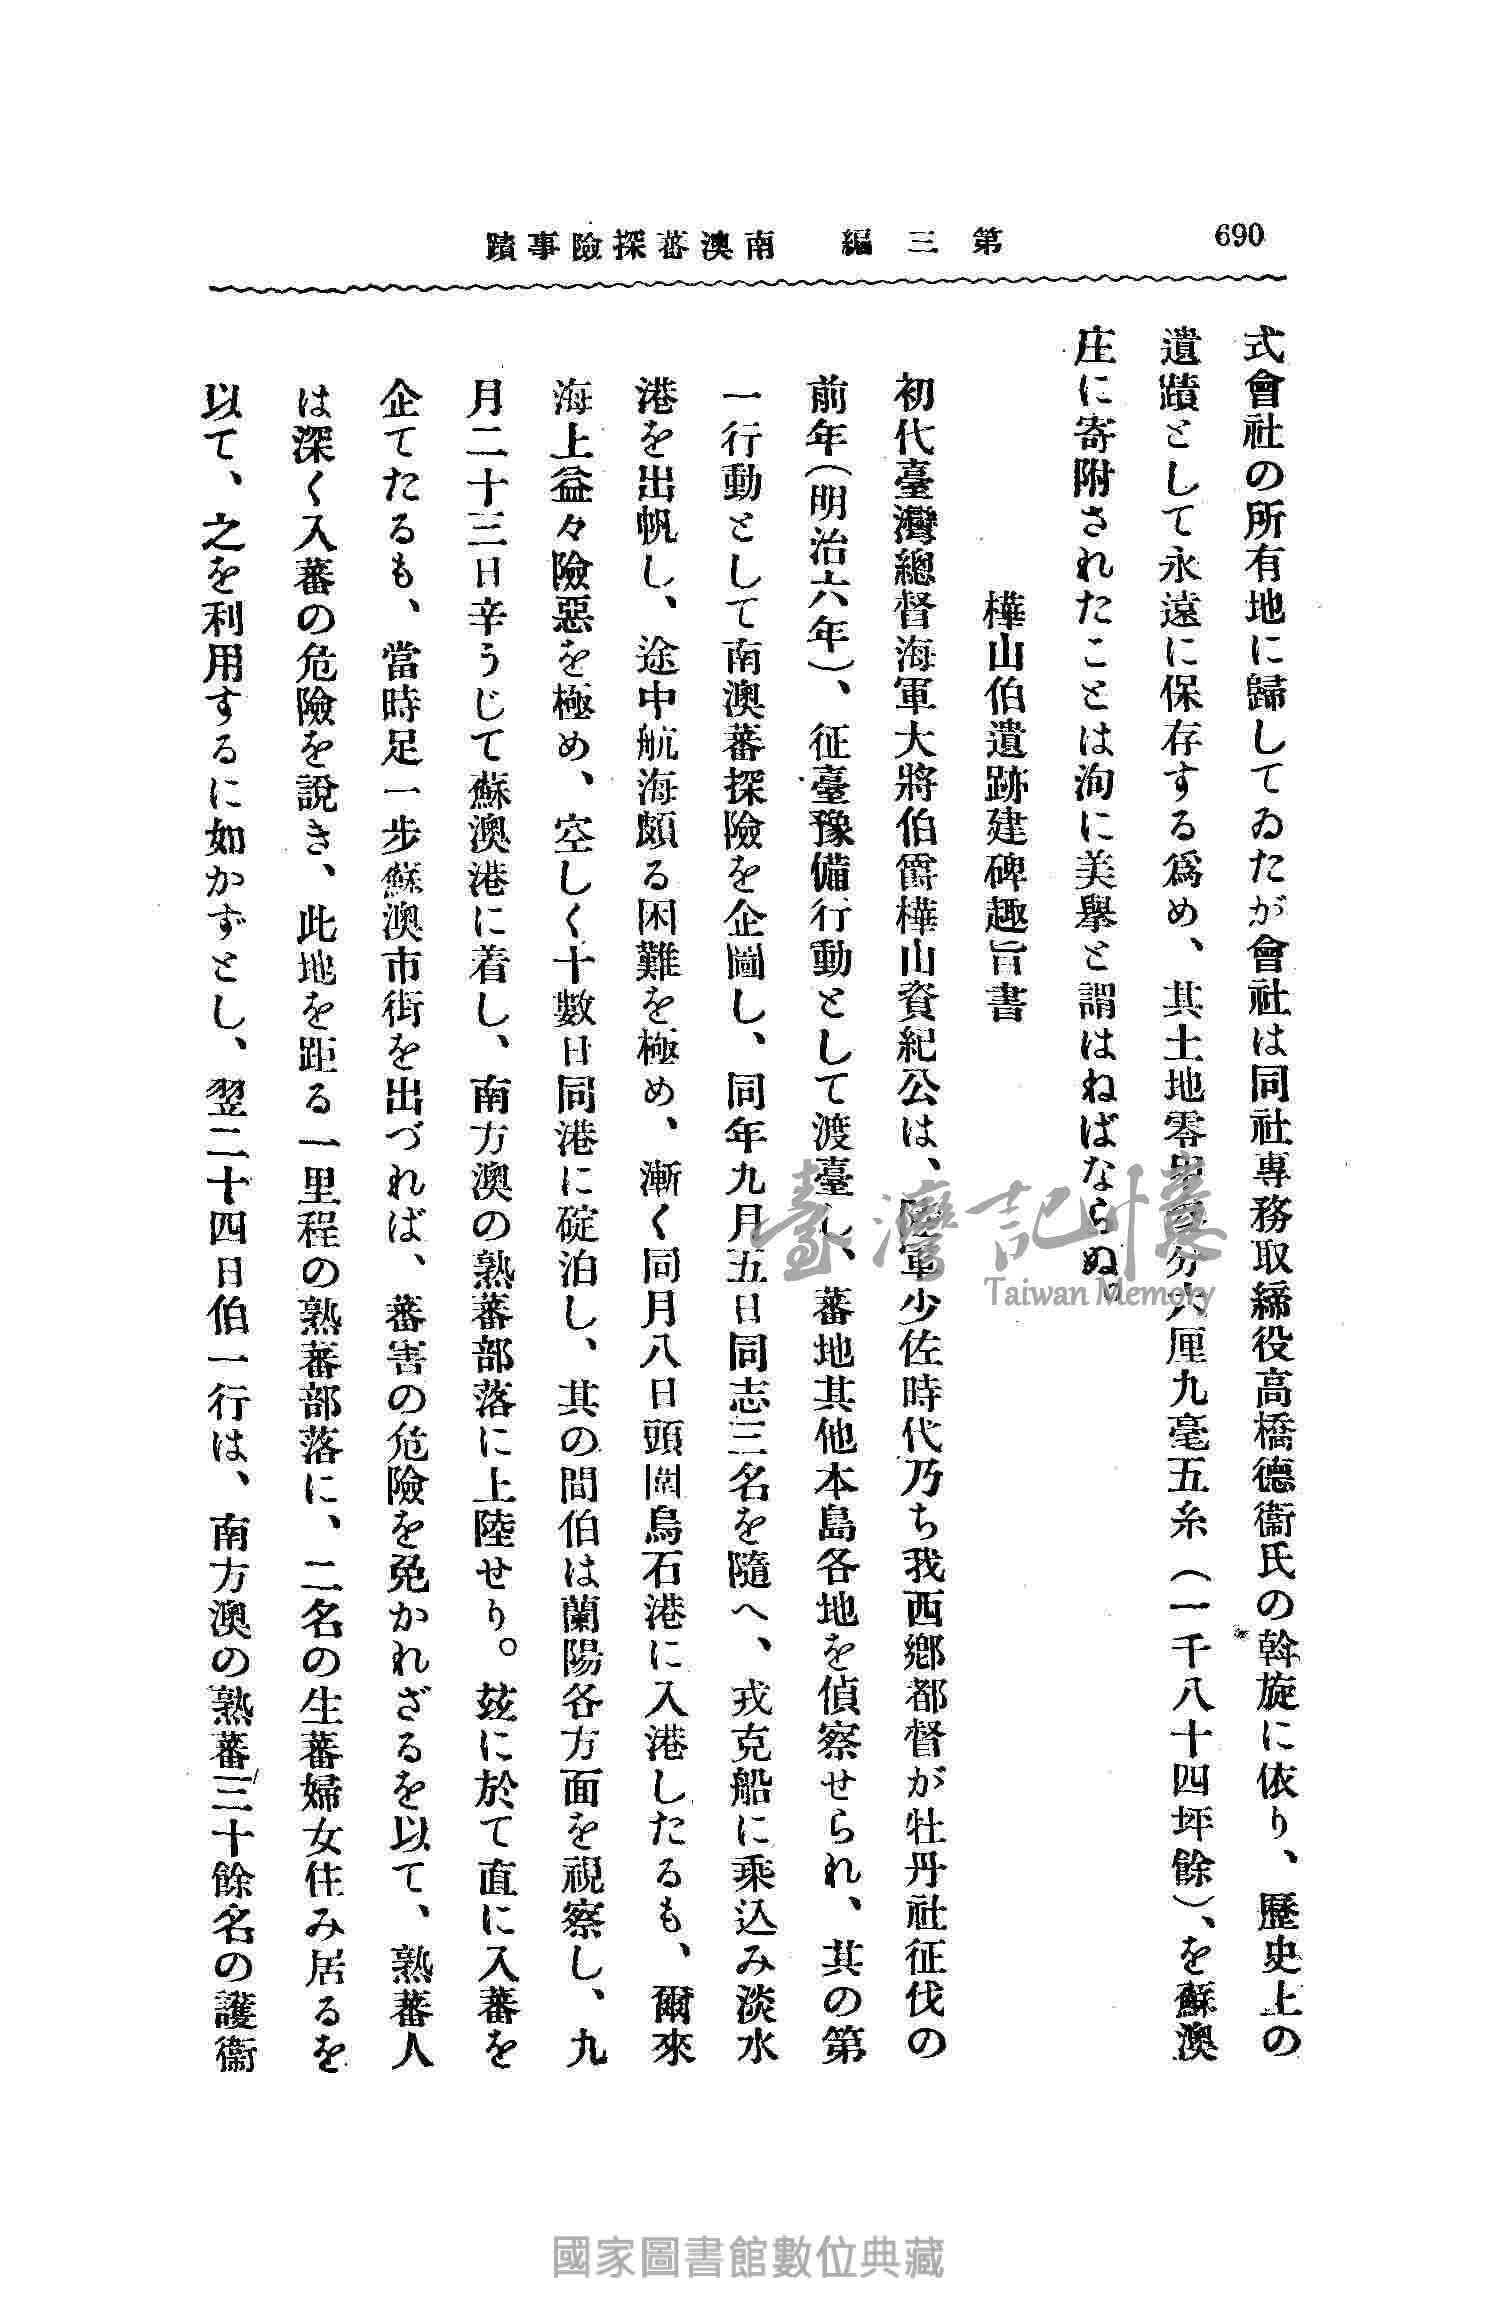 690
第三編 南澳蕃探險事蹟
式會社の所有地に歸してゐたが會社は同社專務取締役高橋德衞氏の斡旋に依り、歷史上の
遺蹟として永遠に保存する爲め、其土地零步分六厘九毫五糸(一千八十四坪餘)、を蘇澳
庄に寄附されたことは洵に美擧と謂はねばならぬ。
樺山伯遺跡建碑趣旨書
初代臺灣總督海軍大將伯爵樺山資紀公は、陸軍少佐時代乃ち我西鄕都督が牡丹社征伐の
前年(明治六年)、征臺豫備行動として渡臺し、蕃地其他本島各地を偵察せられ、其の第
一行動として南澳蕃探險を企圖し、同年九月五日同志三名を隨へ、戎克船に乘込み淡水
港を出帆し、途中航海頗る困難を極め、漸く同月八日頭圍烏石港に入港したるも、爾來
海上益々險惡を極め、空しく十數日同港に碇泊し、其の間伯は蘭陽各方面を視察し、九
月二十三日辛うじて蘇澳港に着し、南方澳の熟蕃部落に上陸せり。玆に於て直に入蕃を
企てたるも、當時足一步蘇澳市街を出づれば、蕃害の危險を免かれざるを以て、熟蕃人
は深く入蕃の危險を說き、此地を距る一里程の熟蕃部落に、二名の生蕃婦女住み居るを
以て、之を利用するに如かずとし、翌二十四日伯一行は、南方澳の熟蕃三十餘名の護衞
臺灣記憶
Taiwan Memory
國家圖書館數位典藏